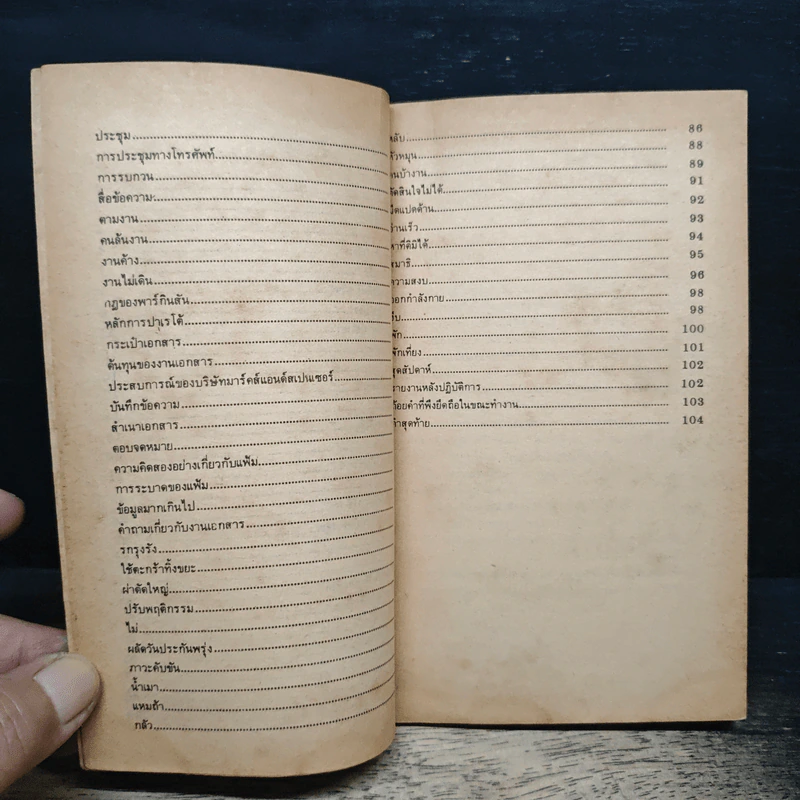 ประชุม
การประชุมทางโทรศัพท์
การรบกวน
สื่อข้อความ
ตามงาน
คนล้นงาน
งานค้าง
งานไม่เดิน
กฎของพาร์กินสัน
หลักการปาเรโต้
กระเป๋าเอกสาร
ต้นทุนของงานเอกสาร
ประสบการณ์ของบริษัทมาร์คส์แอนด์สเปนเซอร์
บันทึกข้อความ
สำเนาเอกสาร
ตอบจดหมาย
ความคิดสองอย่างเกี่ยวกับแฟ้ม
การระบาดของแฟ้ม
ข้อมูลมากเกินไป
คำถามเกี่ยวกับงานเอกสาร
รกรุงรัง
ใช้ตะกร้าทิ้งขยะ
ผ่าตัดใหญ่
ปรับพฤติกรรม
ไม่
ผลัดวันประกันพรุ่ง
ภาวะคับขัน
น้ำเมา
แหมถ้า
กลัว
หลับ 86
หัวหมุน 88
คนบ้างาน 89
ตัดสินใจไม่ได้ 91
แปดด้าน 92
อ่านเร็ว 93
หาที่ติมิได้ 94
สมาธิ 95
ความสงบ 96
ออกกำลังกาย 98
98
พัก 100
พักเที่ยง 101
สุดสัปดาห์ 102
รายงานหลังปฏิบัติการ 102
ถ้อยคำที่พึงยึดถือในขณะทำงาน 103
คำสุดท้าย 104